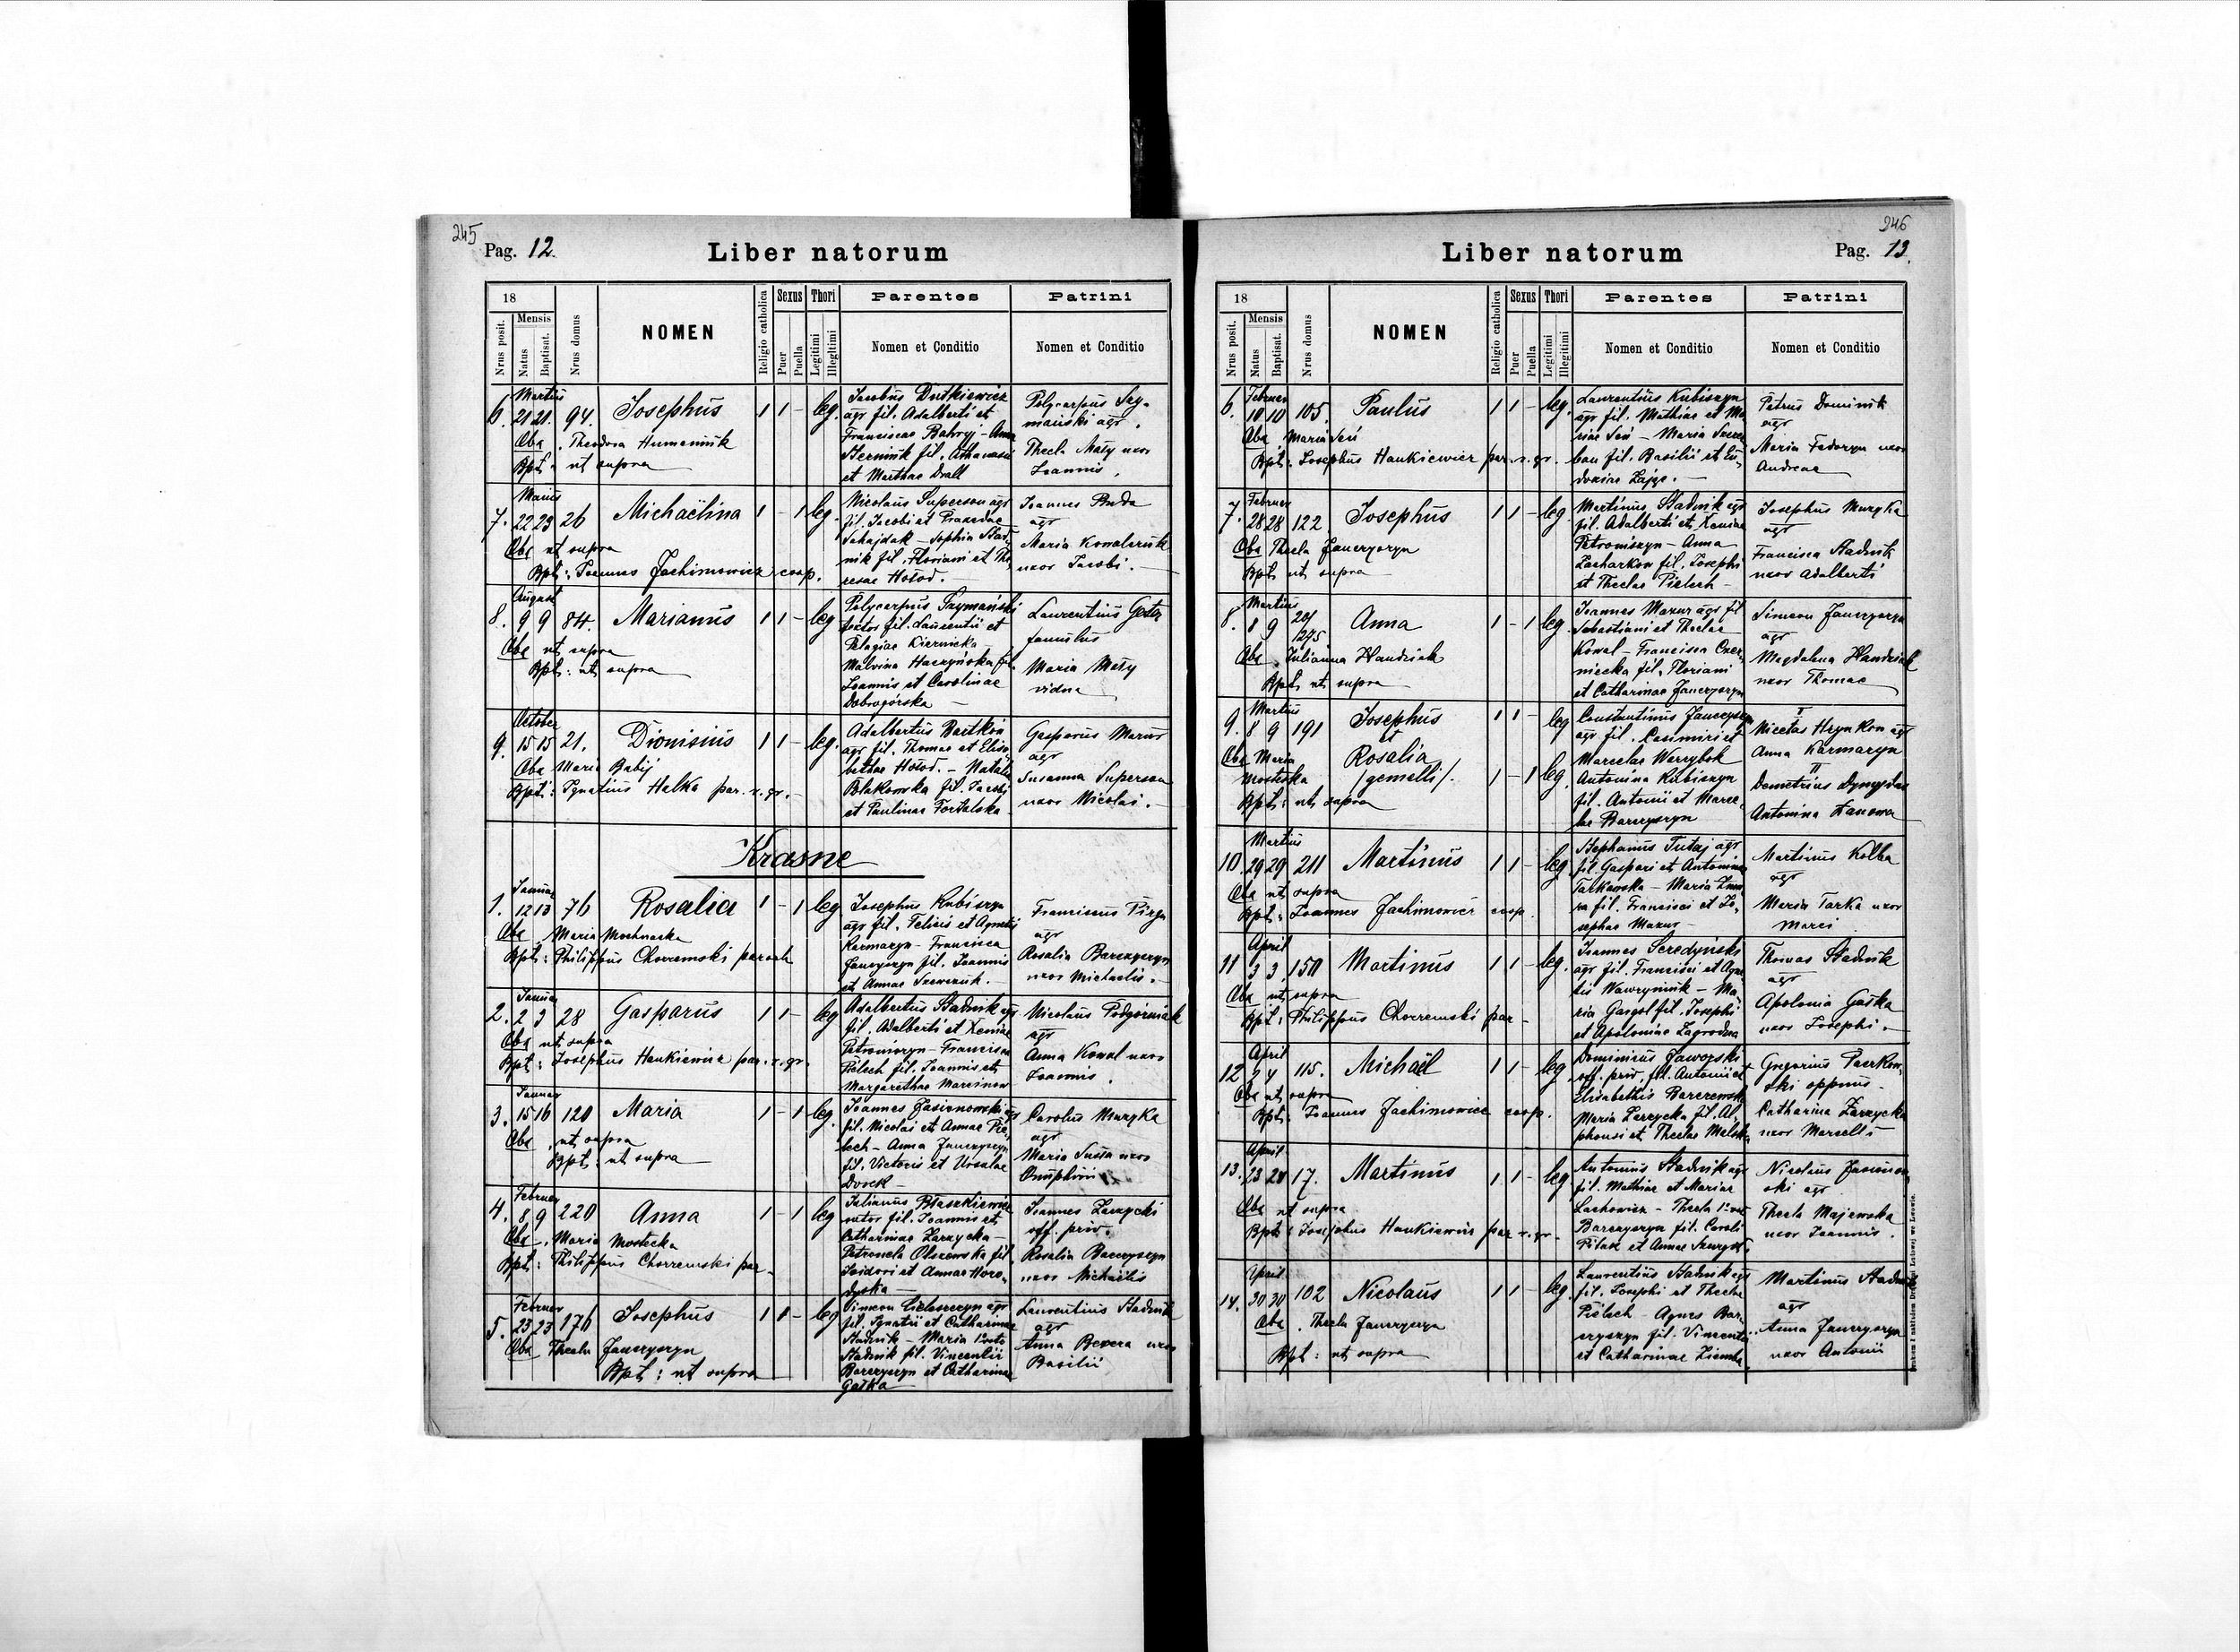 245
Pag. 12.
Liber natorum
18
Nrus posit.
Mensis
Natus
Baptisat.
Nrus domus
NOMEN
Religio catholica
Sexus
Puer
Puella
Thori
Legitimi
Illegitimi
Parentes
Nomen et Conditio
Patrini
Nomen et Conditio
Martius
6. 21 21. 94. Josephus 1 1 - leg.
Obs. Theodora Humeniuk
Bpt. ut supra
Jacobus Dutkiewicz
agr. fil. Adalberti et
Franciscae Bahryj - Anna
Sterniuk fil. Athanasii
et Marthae Drall
Polycarpus Szy-
mański agr.
Thecla Mały uxor
Joannis.
Maius
7. 22 23 26 Michaëlina 1 - 1 leg.
Obs. ut supra
Bpt: Joannes Jachimowicz coop.
Nicolaus Superson agr
fil. Jacobi et Praxedae
Sahajdak - Sophia Stad-
nik fil. Floriani et The
resae Hołod.
Joannes Buda
agr
Maria Kowalczuk
uxor Jacobi.
August
8. 9 9 84. Marianus 1 1 - leg
Obs. ut supra
Bpt: ut supra
Polycarpus Szymański
textor fil. Laurentii et
Pelagiae Kiernicka
Malvina Haczyńska fil.
Joannis et Carolinae
Dobrogórska
Laurentius
famulus
Maria Mały
vidua
October
9. 15 15 21. Dionisius 1 1 - leg.
Obs. Maria Babij
Bpt: Ignatius Halka par. r. gr.
Adalbertus Bartków
agr fil. Thomae et Elisa
bethae Hołod. - Natalia
fil. Jacobi
et Paulinae
Gasparus Mazur
agr
Susanna Superson
uxor Nicolai.
Krasne
Januar
1. 12 13 76 Rosalia 1 - 1 leg
Obs. Maria Mochnacka
Bpt: Philippus Chorzemski paroch
Josephus Kubiszyn
agr fil. Felicis et Agnetis
Karmazyn - Francisca
Janczyszyn fil. Joannis
et Annae Szewczuk.
Franciscus
agr
Rosalia Barczyszyn
uxor Michaelis.
Januar
2. 2 3 28 Gasparus 1 1 - leg
Obs. ut supra
Bpt: Josephus Hankiewicz par. r. gr.
Adalbertus Stadnik agr
fil. Adalberti et Xeniae
Petroniszyn - Francisca
Pielech fil. Joannis et
Margarethae Marcinow
Nicolaus Podgórniak
agr
Anna Kowal uxor
Joannis.
Januar
3. 15 16 120 Maria 1 - 1 leg.
Obs. ut supra
Bpt: ut supra
Joannes Jasienowski agr
fil. Nicolai et Annae Pie
lech - Anna Janczyszyn
fil. Victoris et Ursulae
Dvock -
Carolus Muzyka
agr
Maria uxor
Onuphrii
Februar
4. 8 9 220 Anna 1 - 1 leg
Obs. Maria Mostecka
Bpt: Philippus Chorzemski par.
Julianus Błaszkiewicz
sutor fil. Joannis et
Catharinae Zarzycka -
Petronela Olszewska fil.
Isidori et Annae Horo-
dyska
Joannes Zarzycki
off. priv.
Rosalia Barczyszyn
uxor Michaëlis
Februar
5. 23 23 176 Josephus 1 1 - leg
Obs. Thecla Janczyszyn
Bpt: ut supra
Simeon agr
fil. Ignatii et Catharinae
Stadnik - Maria 1º voto
Stadnik fil. Vincentii
Barczyszyn et Catharinae
Gałka
Laurentius Stadnik
agr
Anna uxor
Basilii
246
Pag. 13.
Liber natorum
18
Nrus posit.
Mensis
Natus
Baptisat.
Nrus domus
NOMEN
Religio catholica
Sexus
Puer
Puella
Thori
Legitimi
Illegitimi
Parentes
Nomen et Conditio
Patrini
Nomen et Conditio
Februar
6. 10 10 105. Paulus 1 1 - leg.
Obs. Maria
Bpt: Josephus Hankiewicz par. r. gr.
Laurentius Kubiszyn
agr fil. Mathiae et Ma
riae - Maria
fil. Basilii et Eu-
dokiae
Petrus Dominik
agr
Maria Fedoryn uxor
Andreae
Februar
7. 28 28 122 Josephus 1 1 - leg
Obs. Thecla Janczyszyn
Bpt. ut supra
Martinus Stadnik agr
fil. Adalberti et Xeniae
Petroniszyn - Anna
Zacharkow fil. Josephi
et Theclae Pielech -
Josephus Muzyka
agr
Francisca Stadnik
uxor Adalberti
Martius
8. 8 9 Anna 1 - 1 leg
Obs. Julianna Handziak
Bpt. ut supra
Joannes Mazur agr fil
Sebastiani et Theclae
Kowal - Francisca Czer-
niecka fil. Floriani
et Catharinae Janczyszyn
Simeon Janczyszyn
agr
Magdalena Handziak
uxor Thomae
Martius
9. 8 9 191 Josephus 1 1 - leg
et
Rosalia
/gemelli/. 1 - 1 leg
Obs. Maria
Mostecka
Bpt: ut supra
Constantinus Janczyszyn
agr fil. Casimiri et
Marcelae
Antonina Kubiszyn
fil. Antonii et Marce-
lae Barczyszyn
I
Nicetas Hrynkow agr
Anna Karmazyn
II
Demetrius
Antonina
Martius
10. 29 29 211 Martinus 1 1 - leg
Obs. ut supra
Bpt: Joannes Jachimowicz coop.
Stephanus Tutaj agr
fil. Gaspari et Antoninae
Tarkowska - Maria
fil. Francisci et Jo-
sephae Mazur -
Martinus Kolba
agr
Maria Tarka uxor
Marci
April
11 3 3 150 Martinus 1 1 - leg.
Obs. ut supra
Bpt: Philippus Chorzemski par -
Joannes Seredyński
agr fil. Francisci et Agne
tis Wawryniuk - Ma-
ria fil. Josephi
et Apoloniae Zagrodna
Thomas Stadnik
agr
Apolonia Gałka
uxor Josephi.
April
12 2 4 115. Michaël 1 1 - leg
Obs. ut supra
Bpt: Joannes Jachimowicz coop.
Dominicus Jaworski
off. priv. fil. Antonii et
Elisabethis
Maria Zarzycka fil. Al-
phonsi et Theclae
Gregorius
ski
Catharina Zarzycka
uxor Marcelli
April
13. 23 24 17. Martinus 1 1 - leg
Obs. ut supra
Bpt: Josephus Hankiewicz par r. gr.
Antonius Stadnik agr
fil. Mathiae et Mariae
Lachowicz - Thecla 1º vot
Barczyszyn fil. Caroli
et Annae
Nicolaus Jasienow
ski agr
Thecla Majewska
uxor Joannis.
April
14. 30 30 102 Nicolaus 1 1 - leg.
Obs. Thecla Janczyszyn
Bpt: ut supra
Laurentius Stadnik agr
fil. Josephi et Theclae
Pielech - Agnes Bar-
czyszyn fil. Vincentii
et Catharinae Ziemba
Martinus Stadnik
agr
Anna Janczyszyn
uxor Antonii